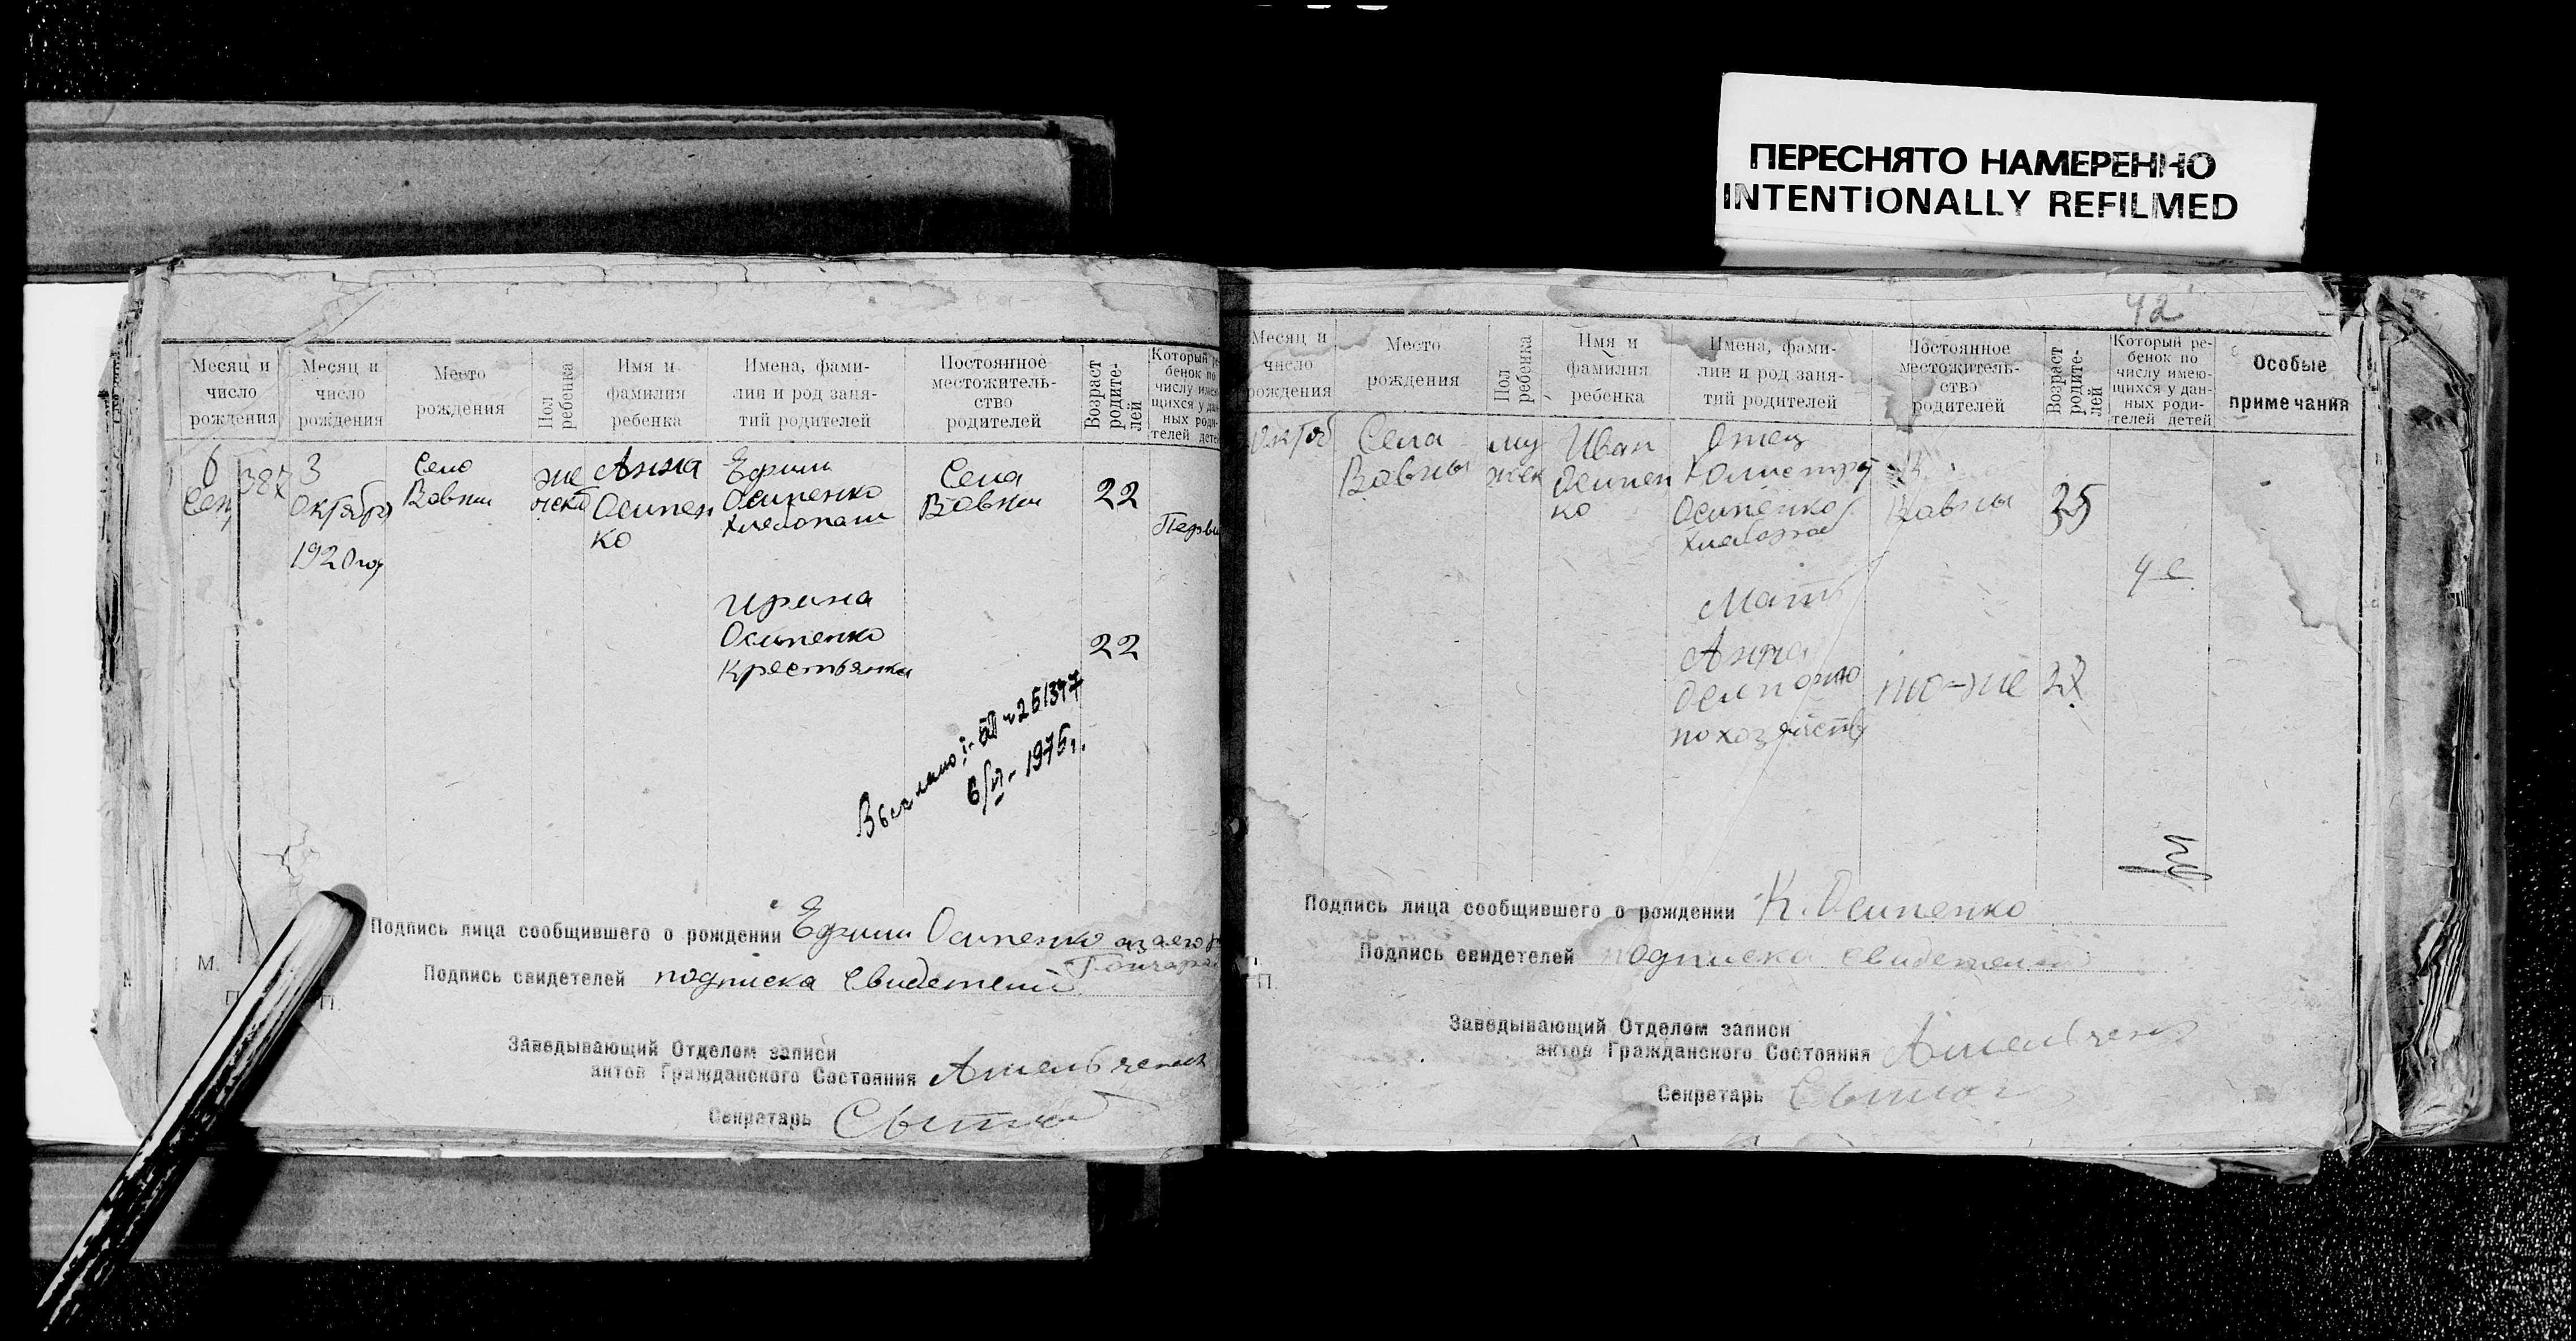 ПЕРЕСНЯТО НАМЕРЕННО
INTENTIONALLY REFILMED
Месяц и
число
рождения
Месяц и
число
рождения
Место
рождения
Пол
ребенка
Имя и
фамилия
ребенка
Имена, фами-
лии и род заня-
тий родителей
Постоянное
местожитель-
ство
родителей
Возраст
родите-
лей
Который
бенок по
числу
щихся у
ных роди-
телей
6
387
3
Октября
1920 год
Село
Вовны
же
нска
Анна
Осипен
ко
Ефим
Осипенко
хлебопаш
Села
Вовны
22
Ирина
Осипенко
Крестьянка
22
Выслано: 251377
6/VI - 1976г.
Подпись лица сообщившего о рождении Ефим Осипенко
Подпись свидетелей подписка свидетелей
М.
П.
Заведывающий Отделом записи
актов Гражданского Состояния
Секретарь
42
Месяц и
число
рождения
Место
рождения
Пол
ребенка
Имя и
фамилия
ребенка
Имена, фами-
лии и род заня-
тий родителей
Постоянное
местожитель-
ство
родителей
Возраст
родите-
лей
Который ре-
бенок по
числу имею-
щихся у дан-
ных роди-
телей детей
Особые
примечания
Октяб
Села
Вовны
му
жск
Иван
Осипен
ко
Отец
Осипенко
хлебороб
Вовны
35
4е
Мать
Анна
по хозяйству
то-же
Подпись лица сообщившего о рождении К. Осипенко
Подпись свидетелей подписка свидетелей
П.
Заведывающий Отделом записи
актов Гражданского Состояния
Секретарь